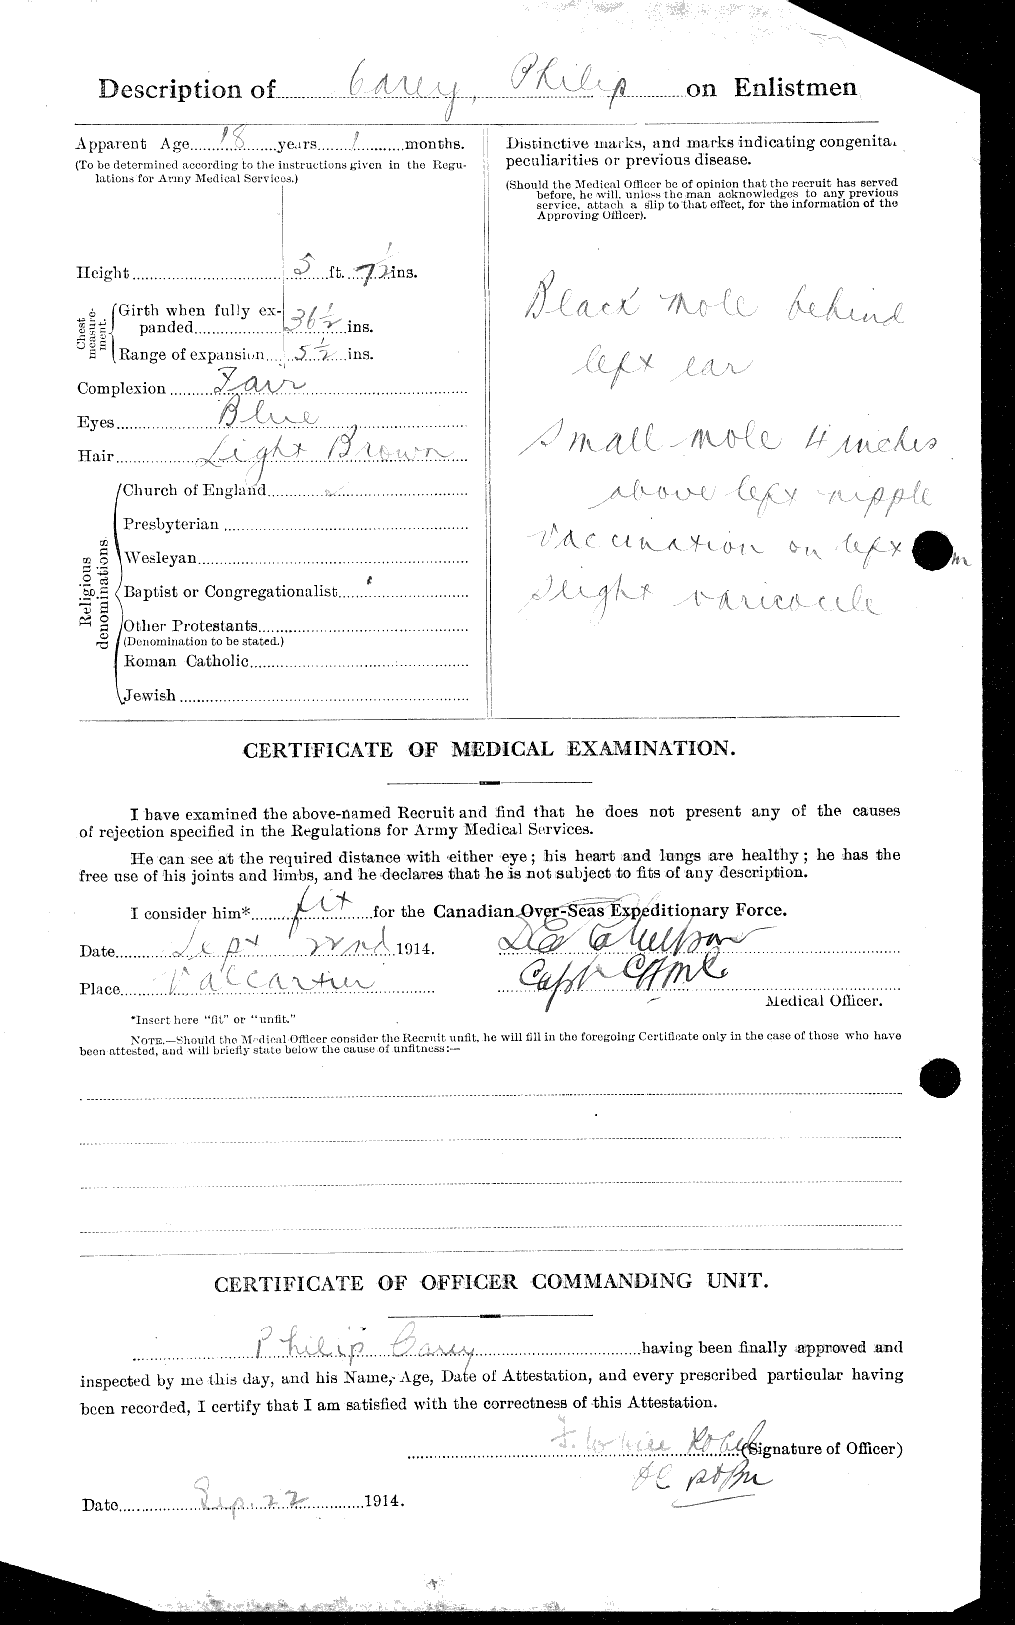 Description of Carey, Philip on Enlistmen
Apparent Age 18 years 1 months.
(To be determined according to the instructions given in the Regu-
lations for Army Medical Services.)
Height 5 ft. 7 1/2 ins.
Chest measure-ment.
Girth when fully ex-
panded 36 1/2 ins.
Range of expansion 5 1/2 ins.
Complexion Fair
Eyes Blue
Hair Light Brown
Religious denominations
Church of England
Presbyterian
Wesleyan
Baptist or Congregationalist
Other Protestants
(Denomination to be stated.)
Roman Catholic
Jewish
Distinctive marks, and marks indicating congenita
peculiarities or previous disease.
(Should the Medical Officer be of opinion that the recruit has served
before, he will, unless the man acknowledges to any previous
service, attach a slip to that effect, for the information of the
Approving Officer).
Black mole behind
left ear
Small mole 4 inches
above left nipple
Vaccination on left
Slight varicocile
CERTIFICATE OF MEDICAL EXAMINATION.
I have examined the above-named Recruit and find that he does not present any of the causes
of rejection specified in the Regulations for Army Medical Services.
He can see at the required distance with either eye; his heart and lungs are healthy; he has the
free use of his joints and limbs, and he declares that he is not subject to fits of any description.
I consider him* fit for the Canadian Over-Seas Expeditionary Force.
Date Sept 22nd 1914.
Place Valcartier
Capt
Medical Officer.
*Insert here "fit" or "unfit."
NOTE.—Should the Medical Officer consider the Recruit unfit, he will fill in the foregoing Certificate only in the case of those who have
been attested, and will briefly state below the cause of unfitness:—
CERTIFICATE OF OFFICER COMMANDING UNIT.
Philip Carey having been finally approved and
inspected by me this day, and his Name, Age, Date of Attestation, and every prescribed particular having
been recorded, I certify that I am satisfied with the correctness of this Attestation.
(Signature of Officer)
Date Sep. 22 1914.